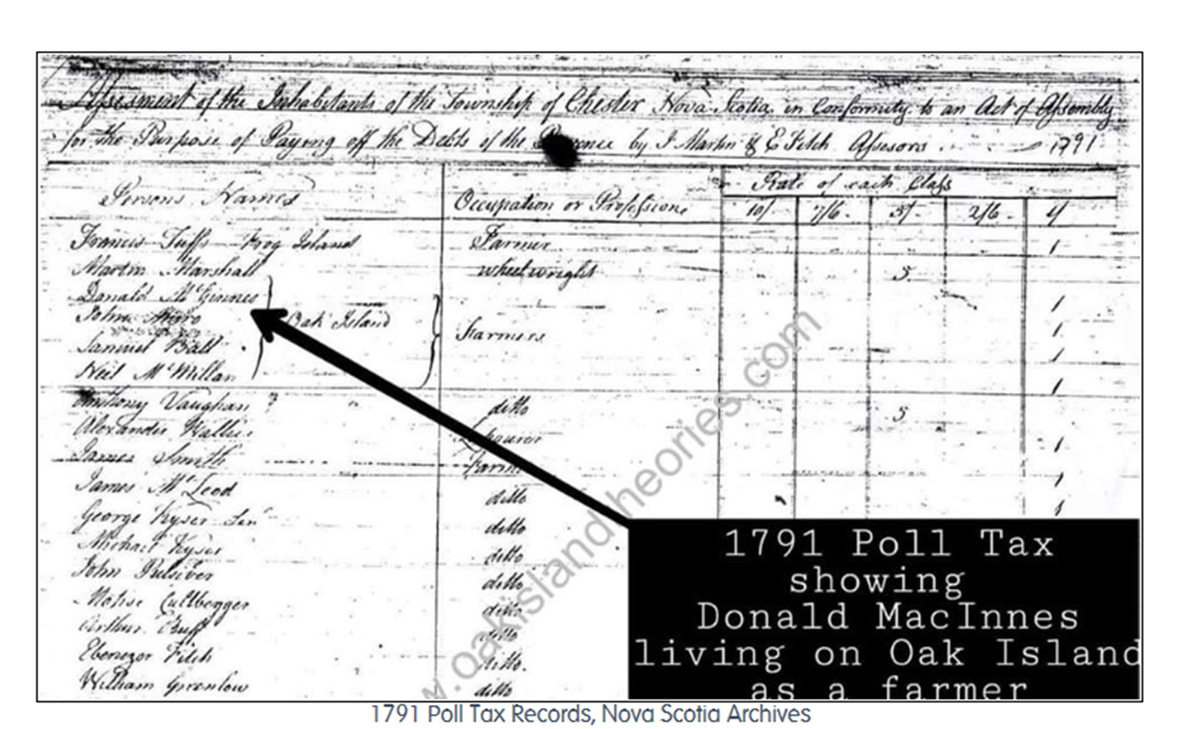 Assesment of the Inhabitants of the Township of Chester Nova-Scotia, in Conformity to an Act of Assembly
for the Purpose of Paying off the Debts of the by J Martin & E Fitch Assesors 1791
Rate of each Class
Persons Names Occupation or Profession 10/- 7/6 5/- 2/6 1/
Francis Tuffs Frog Island Farmer 1
Martin Marshall wheelwright 5
Donald McGinnes 1
John 1
Oak Island Farmers
Samuel Ball 1
Neil McMillan 1
Anthony Vaughan ditto 5
Alexander 1
James Smith 1
James McLeod ditto 1
George Kyser Senr ditto
Michael Kyser ditto
John Pulsiver ditto
ditto
Arthur ditto
Ebenezor Fitch ditto
William Greenlow ditto
w.oakislandtheories.com
1791 Poll Tax
showing
Donald MacInnes
living on Oak Island
as a farmer
1791 Poll Tax Records, Nova Scotia Archives